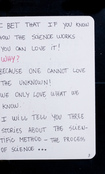 I BET THAT IF YOU KNOW
HOW THE SCIENCE WORKS
YOU CAN LOVE IT!
WHY?
BECAUSE ONE CANNOT LOVE
THE UNKNOWN!
WE ONLY LOVE WHAT WE
KNOW.
I WILL TELL YOU THREE
STORIES ABOUT THE SCIEN-
TIFIC METHOD - THE PROCESS
OF SCIENCE ...